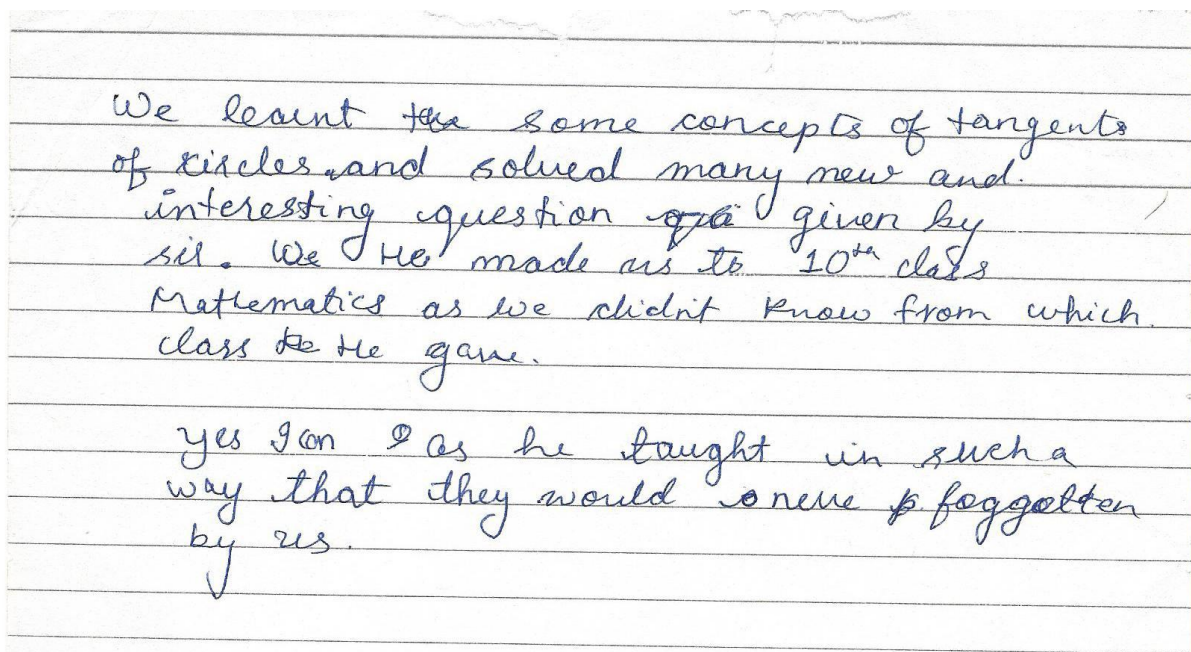 We learnt some concepts of tangents
of circles. and solved many new and.
interesting question given by
sir. We He made us to 10th class
Mathematics as we didn't know from which.
class He gave.
yes I can as he taught in such a
way that they would neve foggotten
by us.